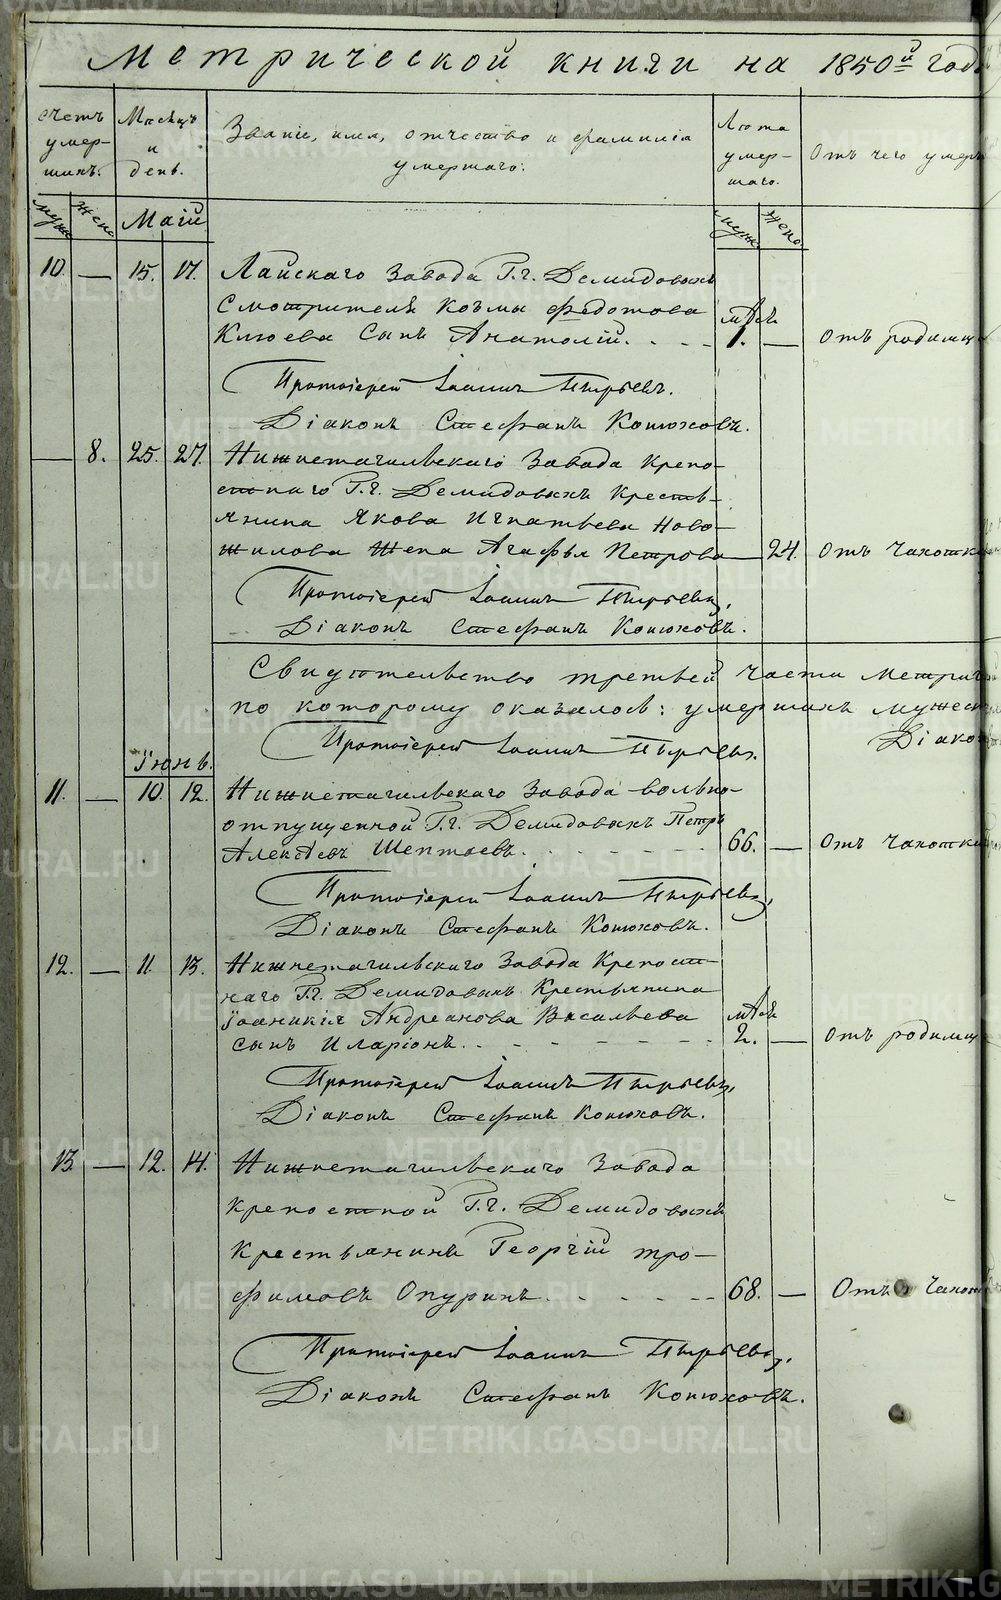 Метрической книги на 1850й годъ
Счетъ умершихъ.
Мѣсяцъ и день.
Званіе, имя, отчество и фамилія умершаго.
Лѣта умершаго.
Отъ чего умеръ
муж. жен.
Маій
муж. жен.
10. — 15. 17. Лайскаго Завода Г.г. Демидовыхъ
Смотрителя Козьмы Федотова
мѣс.
Клюева Сынъ Анатолій. 1. — Отъ родимц
Протоіерей Іоаннъ Пырьевъ.
Діаконъ Стефанъ Конюховъ.
— 8. 25. 27. Нижнетагильскаго Завода крепо-
стнаго Г.г. Демидовыхъ крестья-
янина Якова Игнатьева Ново-
жилова Жена Агафья Петрова — 24. Отъ Чахотки
Протоіерей Іоаннъ Пырьевъ.
Діаконъ Стефанъ Конюховъ.
Свидѣтельство третьей части Метрич
по которому оказалось: умершихъ мужеск
Протоіерей Іоаннъ Пырьевъ.
Діако
Іюнь.
11. — 10. 12. Нижнетагильскаго Завода вольно-
отпущенной Г.г. Демидовыхъ Петръ
Алексѣевъ Шептаевъ. 66. — Отъ Чахотки
Протоіерей Іоаннъ Пырьевъ,
Діаконъ Стефанъ Конюховъ.
12. — 11. 13. Нижнетагильскаго Завода Крепост-
наго Г.г. Демидовыхъ Крестьянина
Іоанникія Андреанова Васильева
мѣс.
сынъ Иларіонъ. 2. — Отъ родимц
Протоіерей Іоаннъ Пырьевъ,
Діаконъ Стефанъ Конюховъ.
13 — 12. 14. Нижнетагильскаго Завода
крепостной Г.г. Демидовыхъ
Крестьянинъ Георгій Тро-
фимовъ Опуринъ. 68. — Отъ Чахот
Протоіерей Іоаннъ Пырьевъ.
Діаконъ Стефанъ Конюховъ.
METRIKI.GASO-URAL.RU